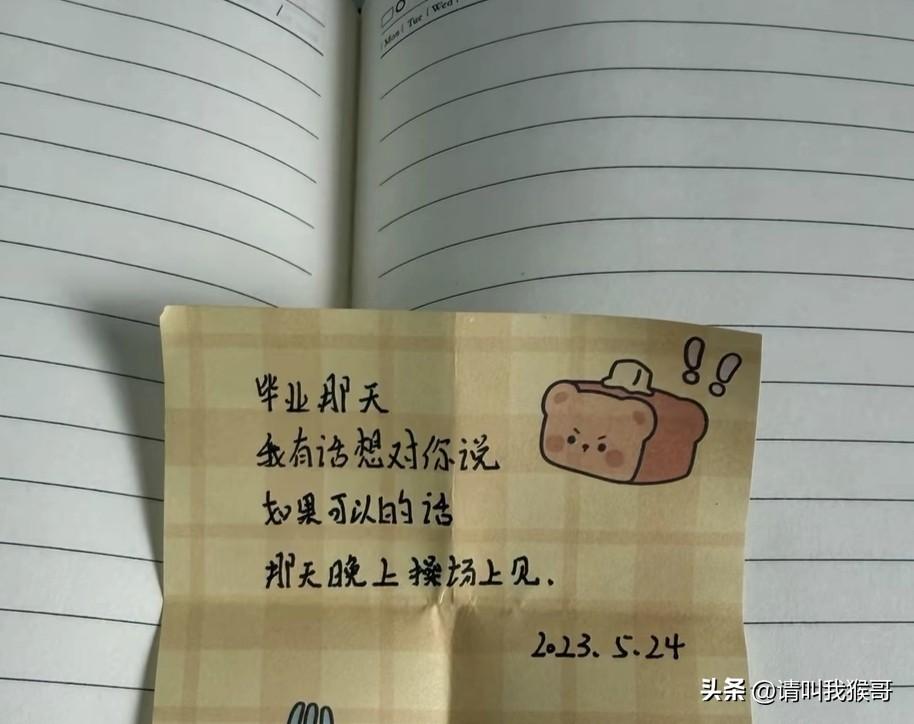 Mon Tue Wed
毕业那天
我有话想对你说
如果可以的话
那天晚上操场上见.
2023.5.24
头条 @请叫我猴哥